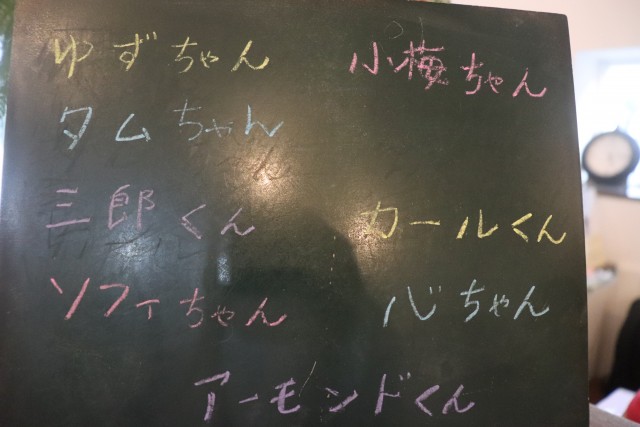 ゆずちゃん 小梅ちゃん
タムちゃん
三郎くん カールくん
ソフィちゃん 心ちゃん
アーモンドくん